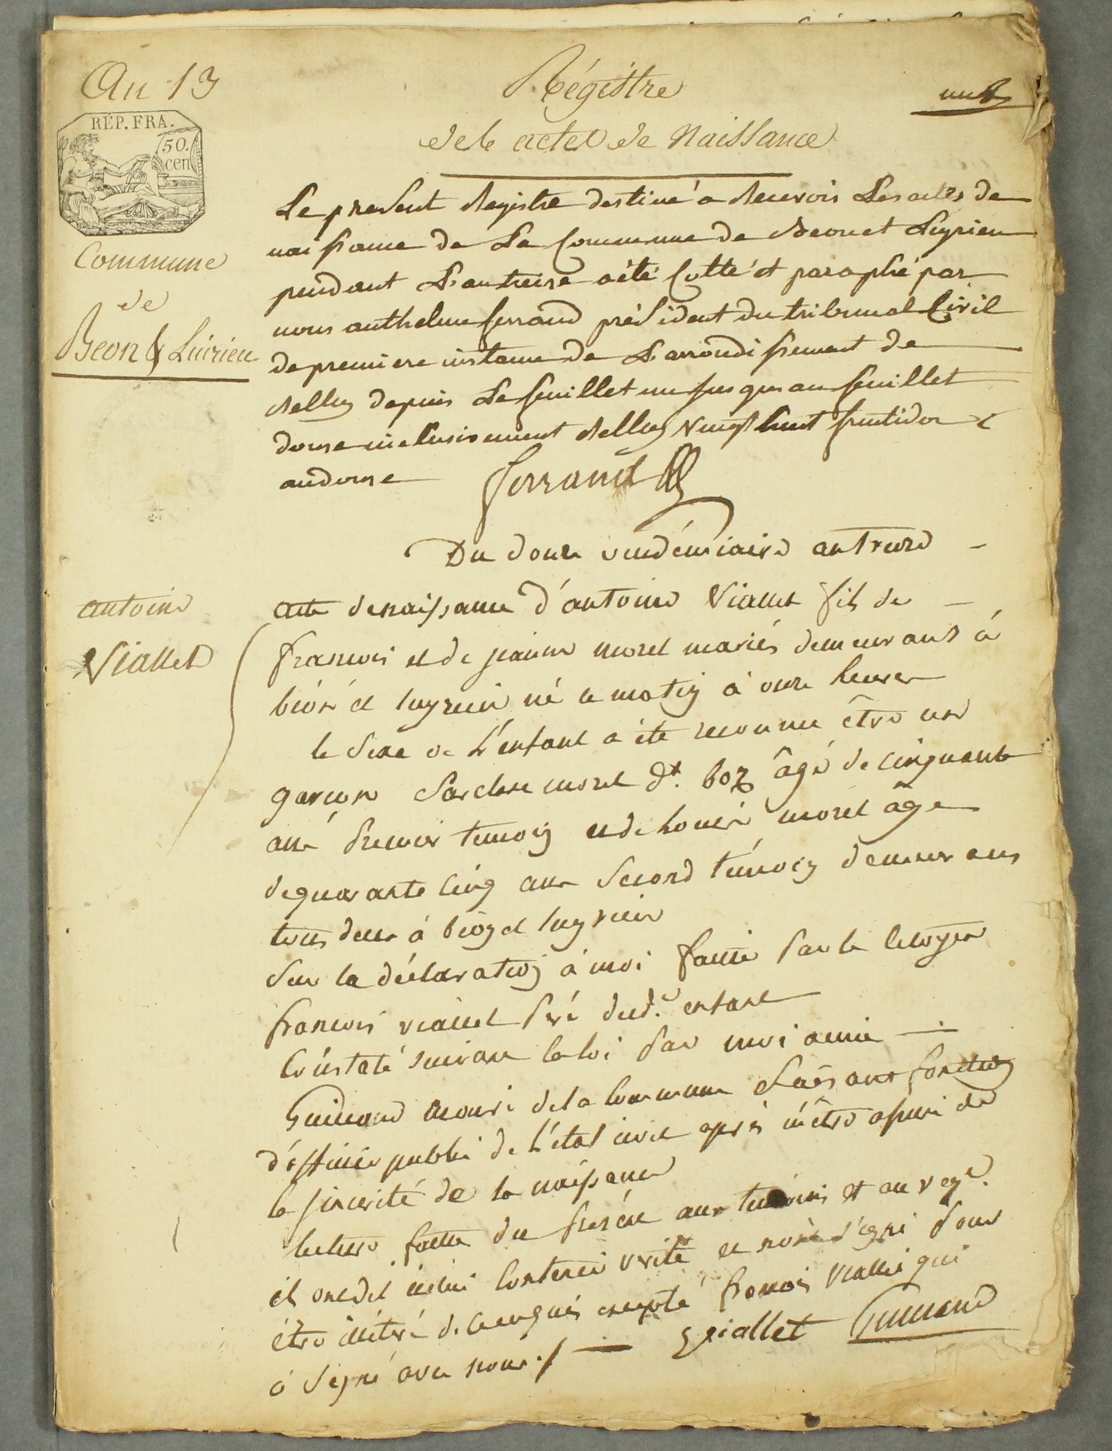 An 13
Régistre
des actes de Naissance
REP. FRA.
50.
cen
Commune
de
Beon & Luirieu
Le present Registre destiné a Recevoir Les actes de
naissance de La Commune de Beon et Luyrieu
pendant L'an treize a été Cotté et paraphé par
nous anthelme ferrand président du tribunal Civil
de premiere instance de L'arrondissement de
Belley depuis Le feuillet un jusques au feuillet
douze inclusivement Belley vingt huit fructidor
an douze ferrand
Du douze vendémiaire an treize
antoine
Viallet
acte de naissance d'antoine Viallet fils de
francois et de jeanne morel mariés demeurans à
béon et luyrieu né ce matin à onze heures
le sexe de l'enfant a été reconnu être un
garçon morel dt. boz âgé de cinquante
ans premier temoin et de morel âgé
de quarante cinq ans second témoin demeurans
tous deux à béon et luyrieu
Sur la déclaration à moi faitte par le citoyen
francois viallet pere dud. enfant
Constaté suivant la loi par moi
Guilland maire de la commune faisant fonction
d'officier public de l'état civil après m'être assuré de
la sincerité de la naissance
lecture faitte du present aux temoins et au
ils ont dit icelui contenir vérité et n'ont signé pour
être illitéré de ce enquis excepté francois viallet qui
à signé avec nous ./. viallet Guilland